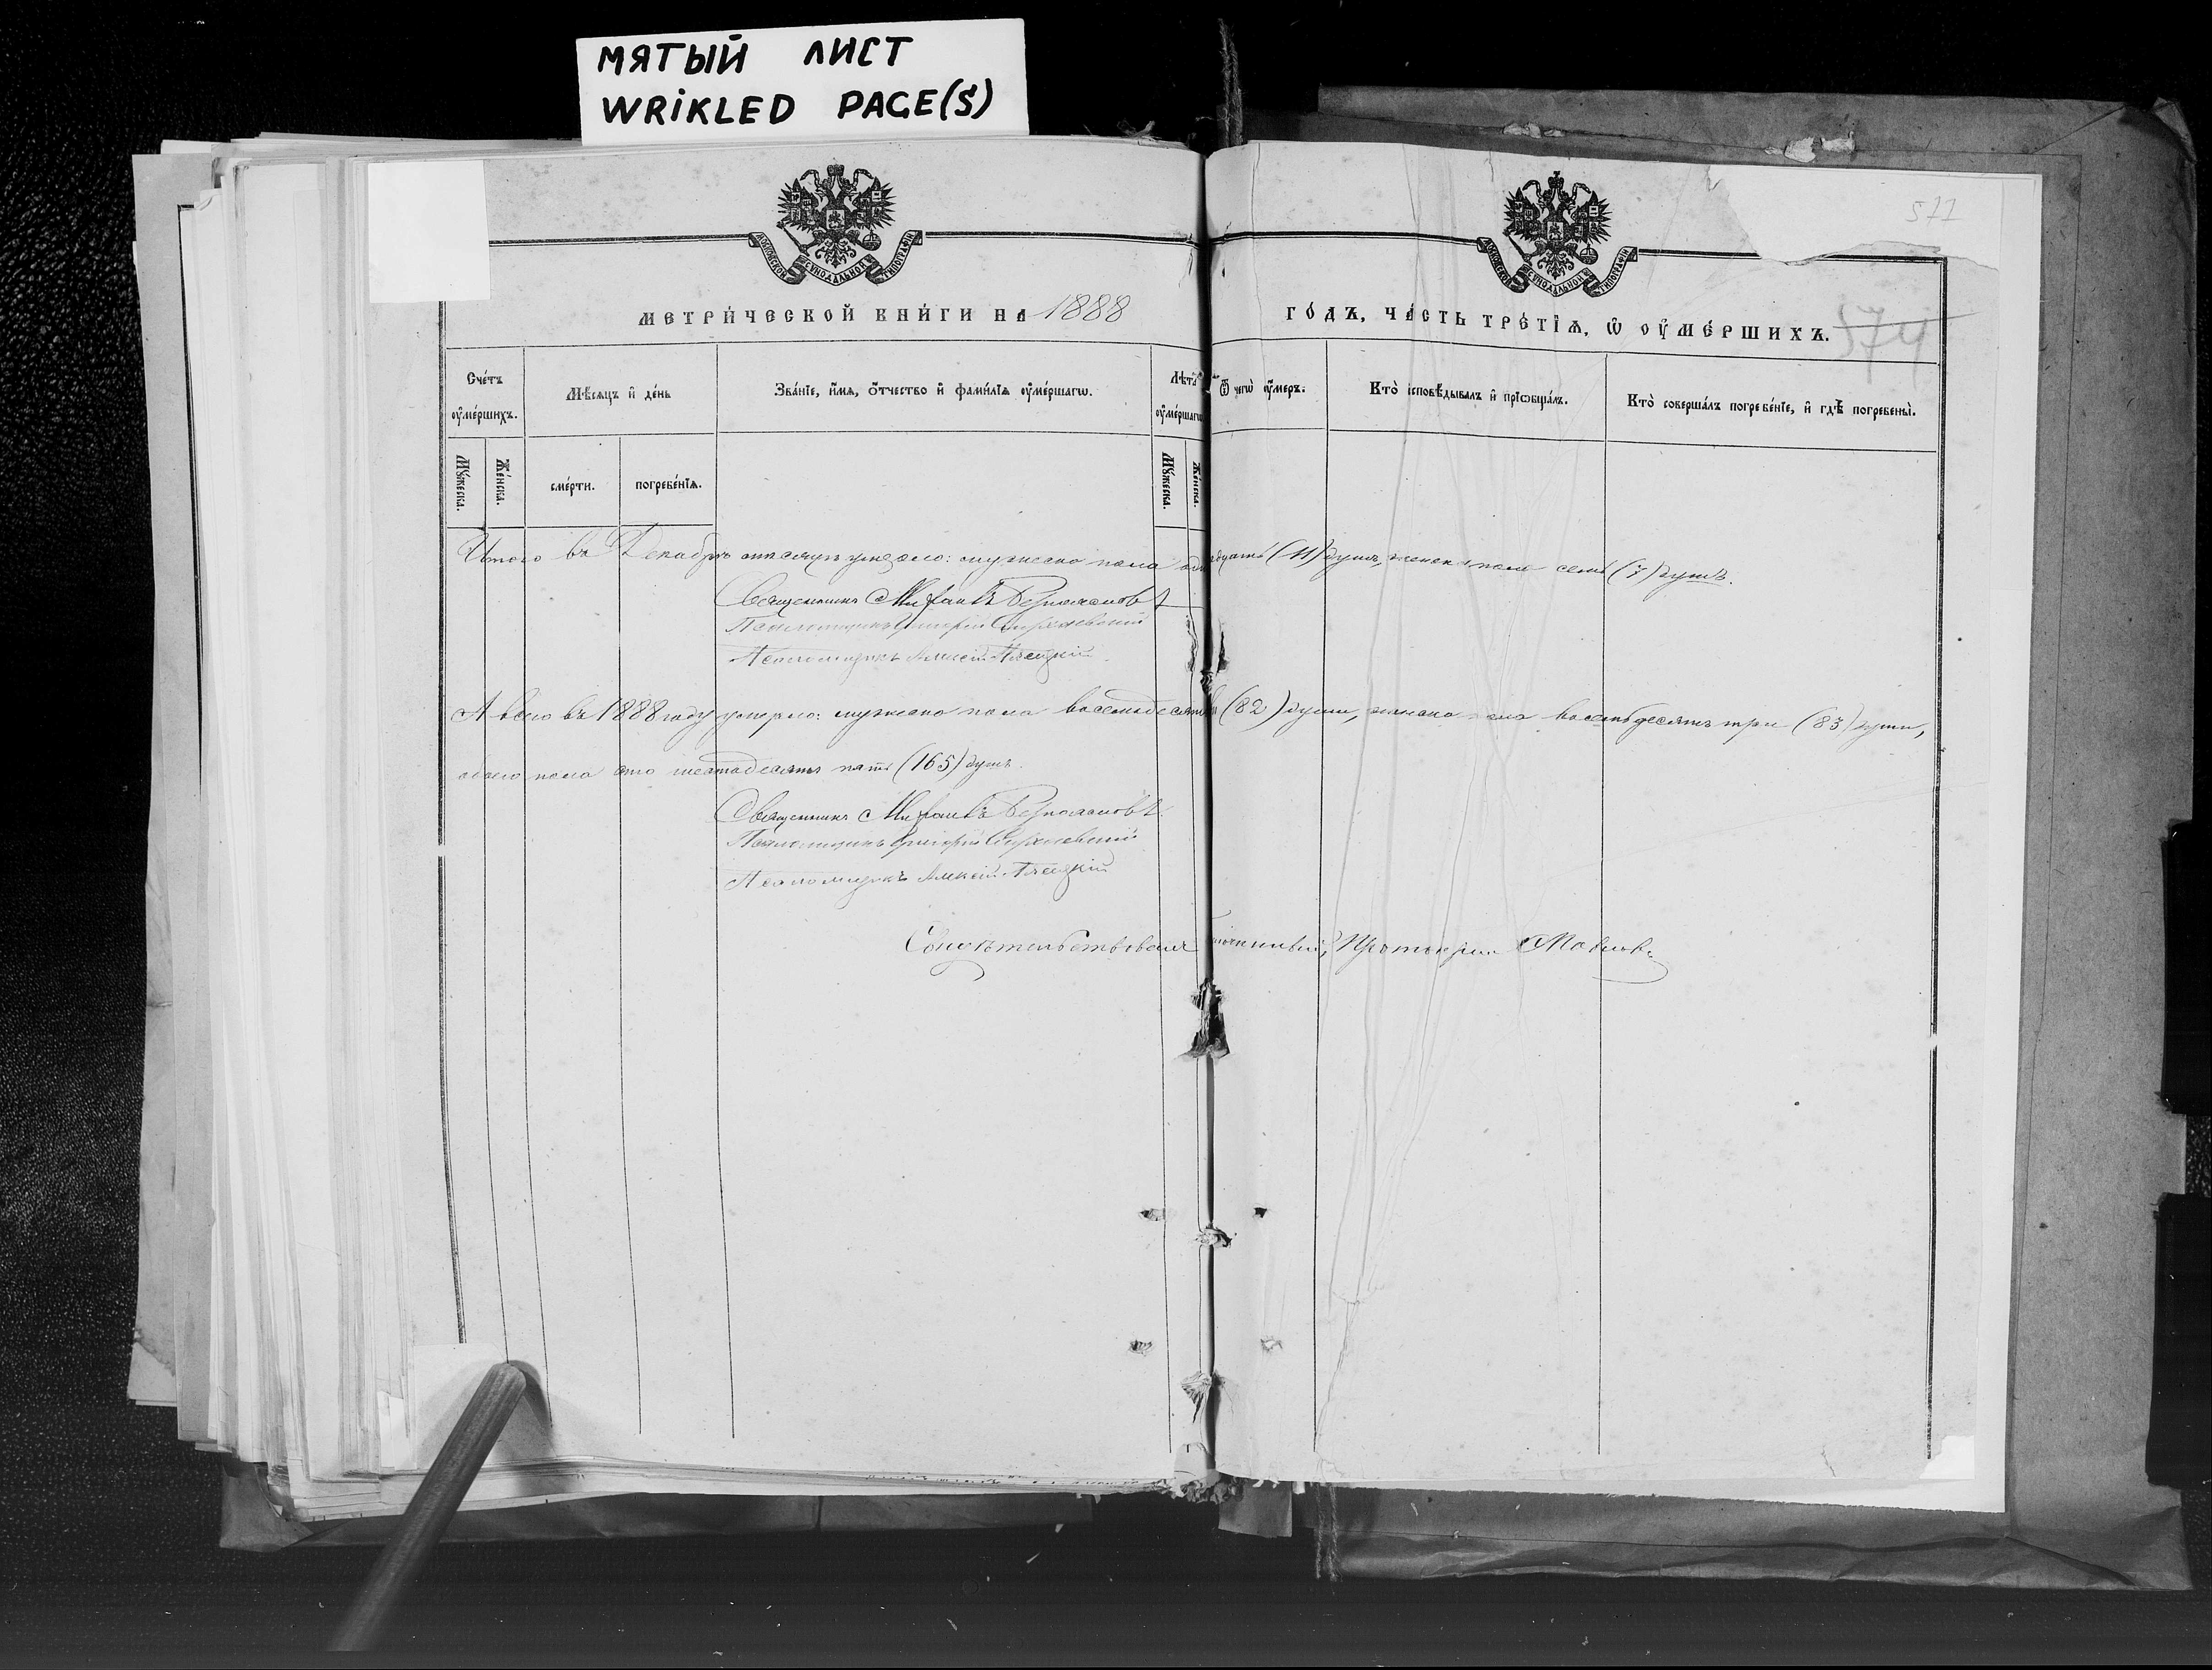 МЯТЫЙ ЛИСТ
WRiKLED PAGE(S)
МОСКОВСКОЙ СѴНОДАЛЬНОЙ ТИПОГРАФІИ
МОСКОВСКОЙ СѴНОДАЛЬНОЙ ТИПОГРАФІИ
571
МЕТРИ́ЧЕСКОЙ КНИ́ГИ НА 1888 ГО́ДЪ, ЧА́СТЬ ТРЕ́ТІѦ, Ѽ ОУ҆МЕ́РШИХЪ.
574
Сче́тъ оу҆ме́ршихъ.
Мѣ́сѧцъ и҆ де́нь
Зва́нїе, и҆́мѧ, ѻ҆́тчество и҆ фами́лїѧ оу҆ме́ршагѡ.
Лѣ́та оу҆ме́ршагѡ
Ѿ чегѡ̀ оу҆́меръ.
Кто̀ и҆сповѣ́дывалъ и҆ прїѡбща́лъ.
Кто̀ соверша́лъ погребе́нїе, и҆ гдѣ̀ погребены̀.
Мꙋ́жеска.
Же́нска.
сме́рти.
погребе́нїѧ.
Мꙋ́жеска.
Же́нска.
Итого въ Декабрѣ мѣсяцѣ умерло: мужеска пола (11) душъ, женска пола семь (7) душъ.
Священникъ Михаилъ
Псаломщикъ Григорій
Псаломщикъ Алексій
А всего въ 1888 году умерло: мужеска пола восемьдесятъ (82) души, женска пола восемьдесятъ три (83) души,
обоего пола сто шестьдесятъ пять (165) душъ.
Священникъ Михаилъ
Псаломщикъ Григорій
Псаломщикъ Алексій
Свидѣтельствовалъ Протоіерей